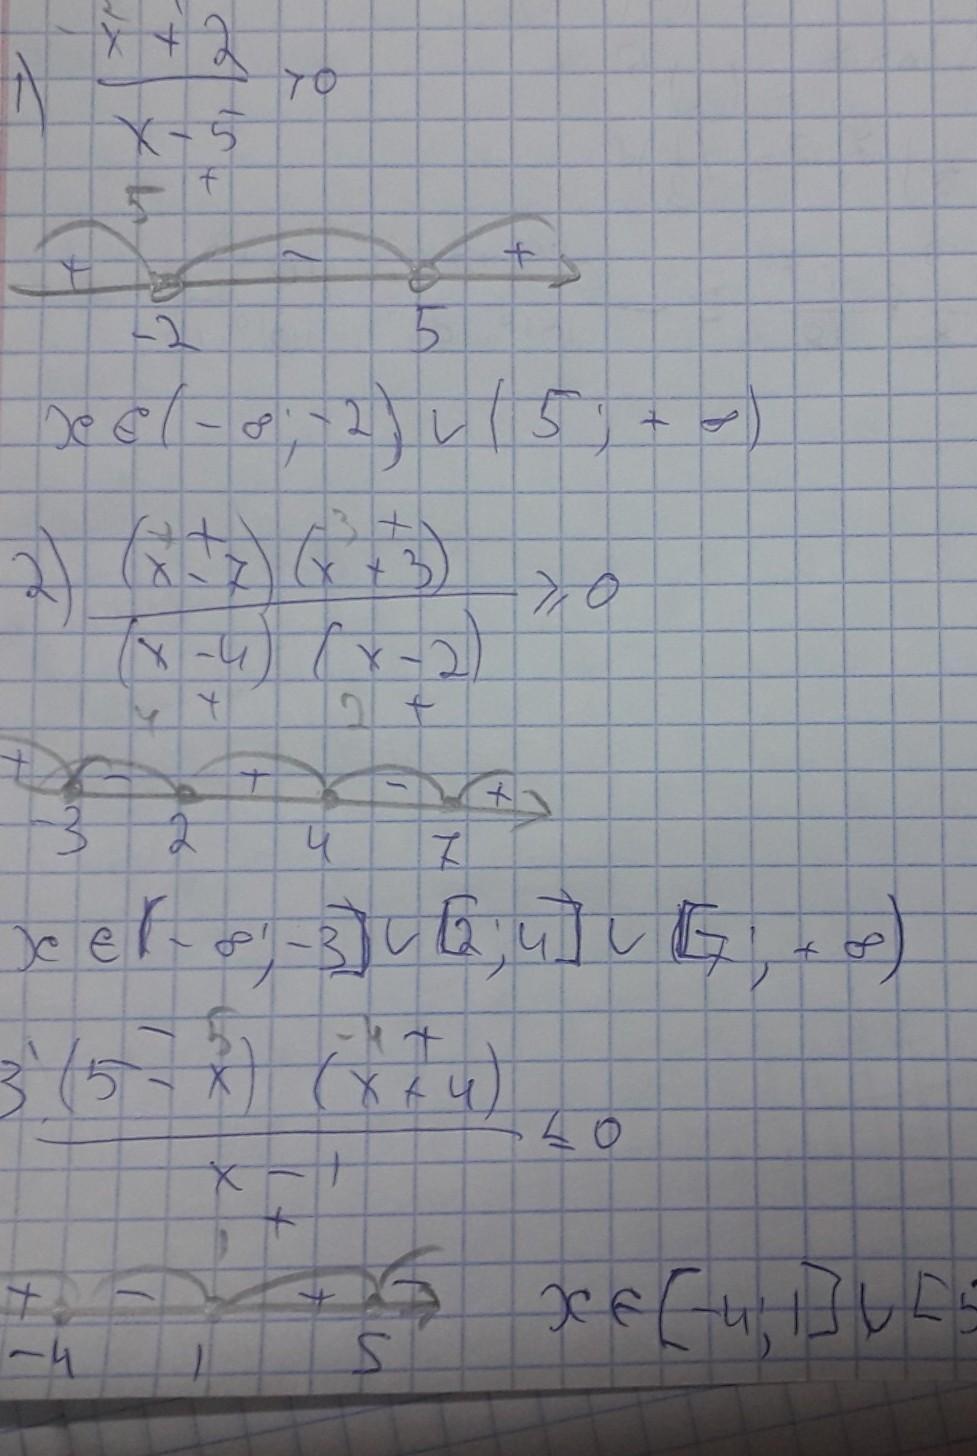 1) x + 2
x - 5 >0
5 +
+ - +
-2 5
x ∈ (-∞; -2) ∪ (5; +∞)
7 + -3 +
2) (x - 7) (x + 3)
(x - 4) (x - 2) ⩾ 0
4 + 2 +
+ - + - +
-3 2 4 7
x ∈ (-∞; -3] ∪ [2; 4] ∪ [7; +∞)
- 5 -4 +
3 (5 - x) (x + 4)
x - 1 ≤ 0
1 +
+ - + -
-4 1 5 x ∈ [-4; 1] ∪ [5